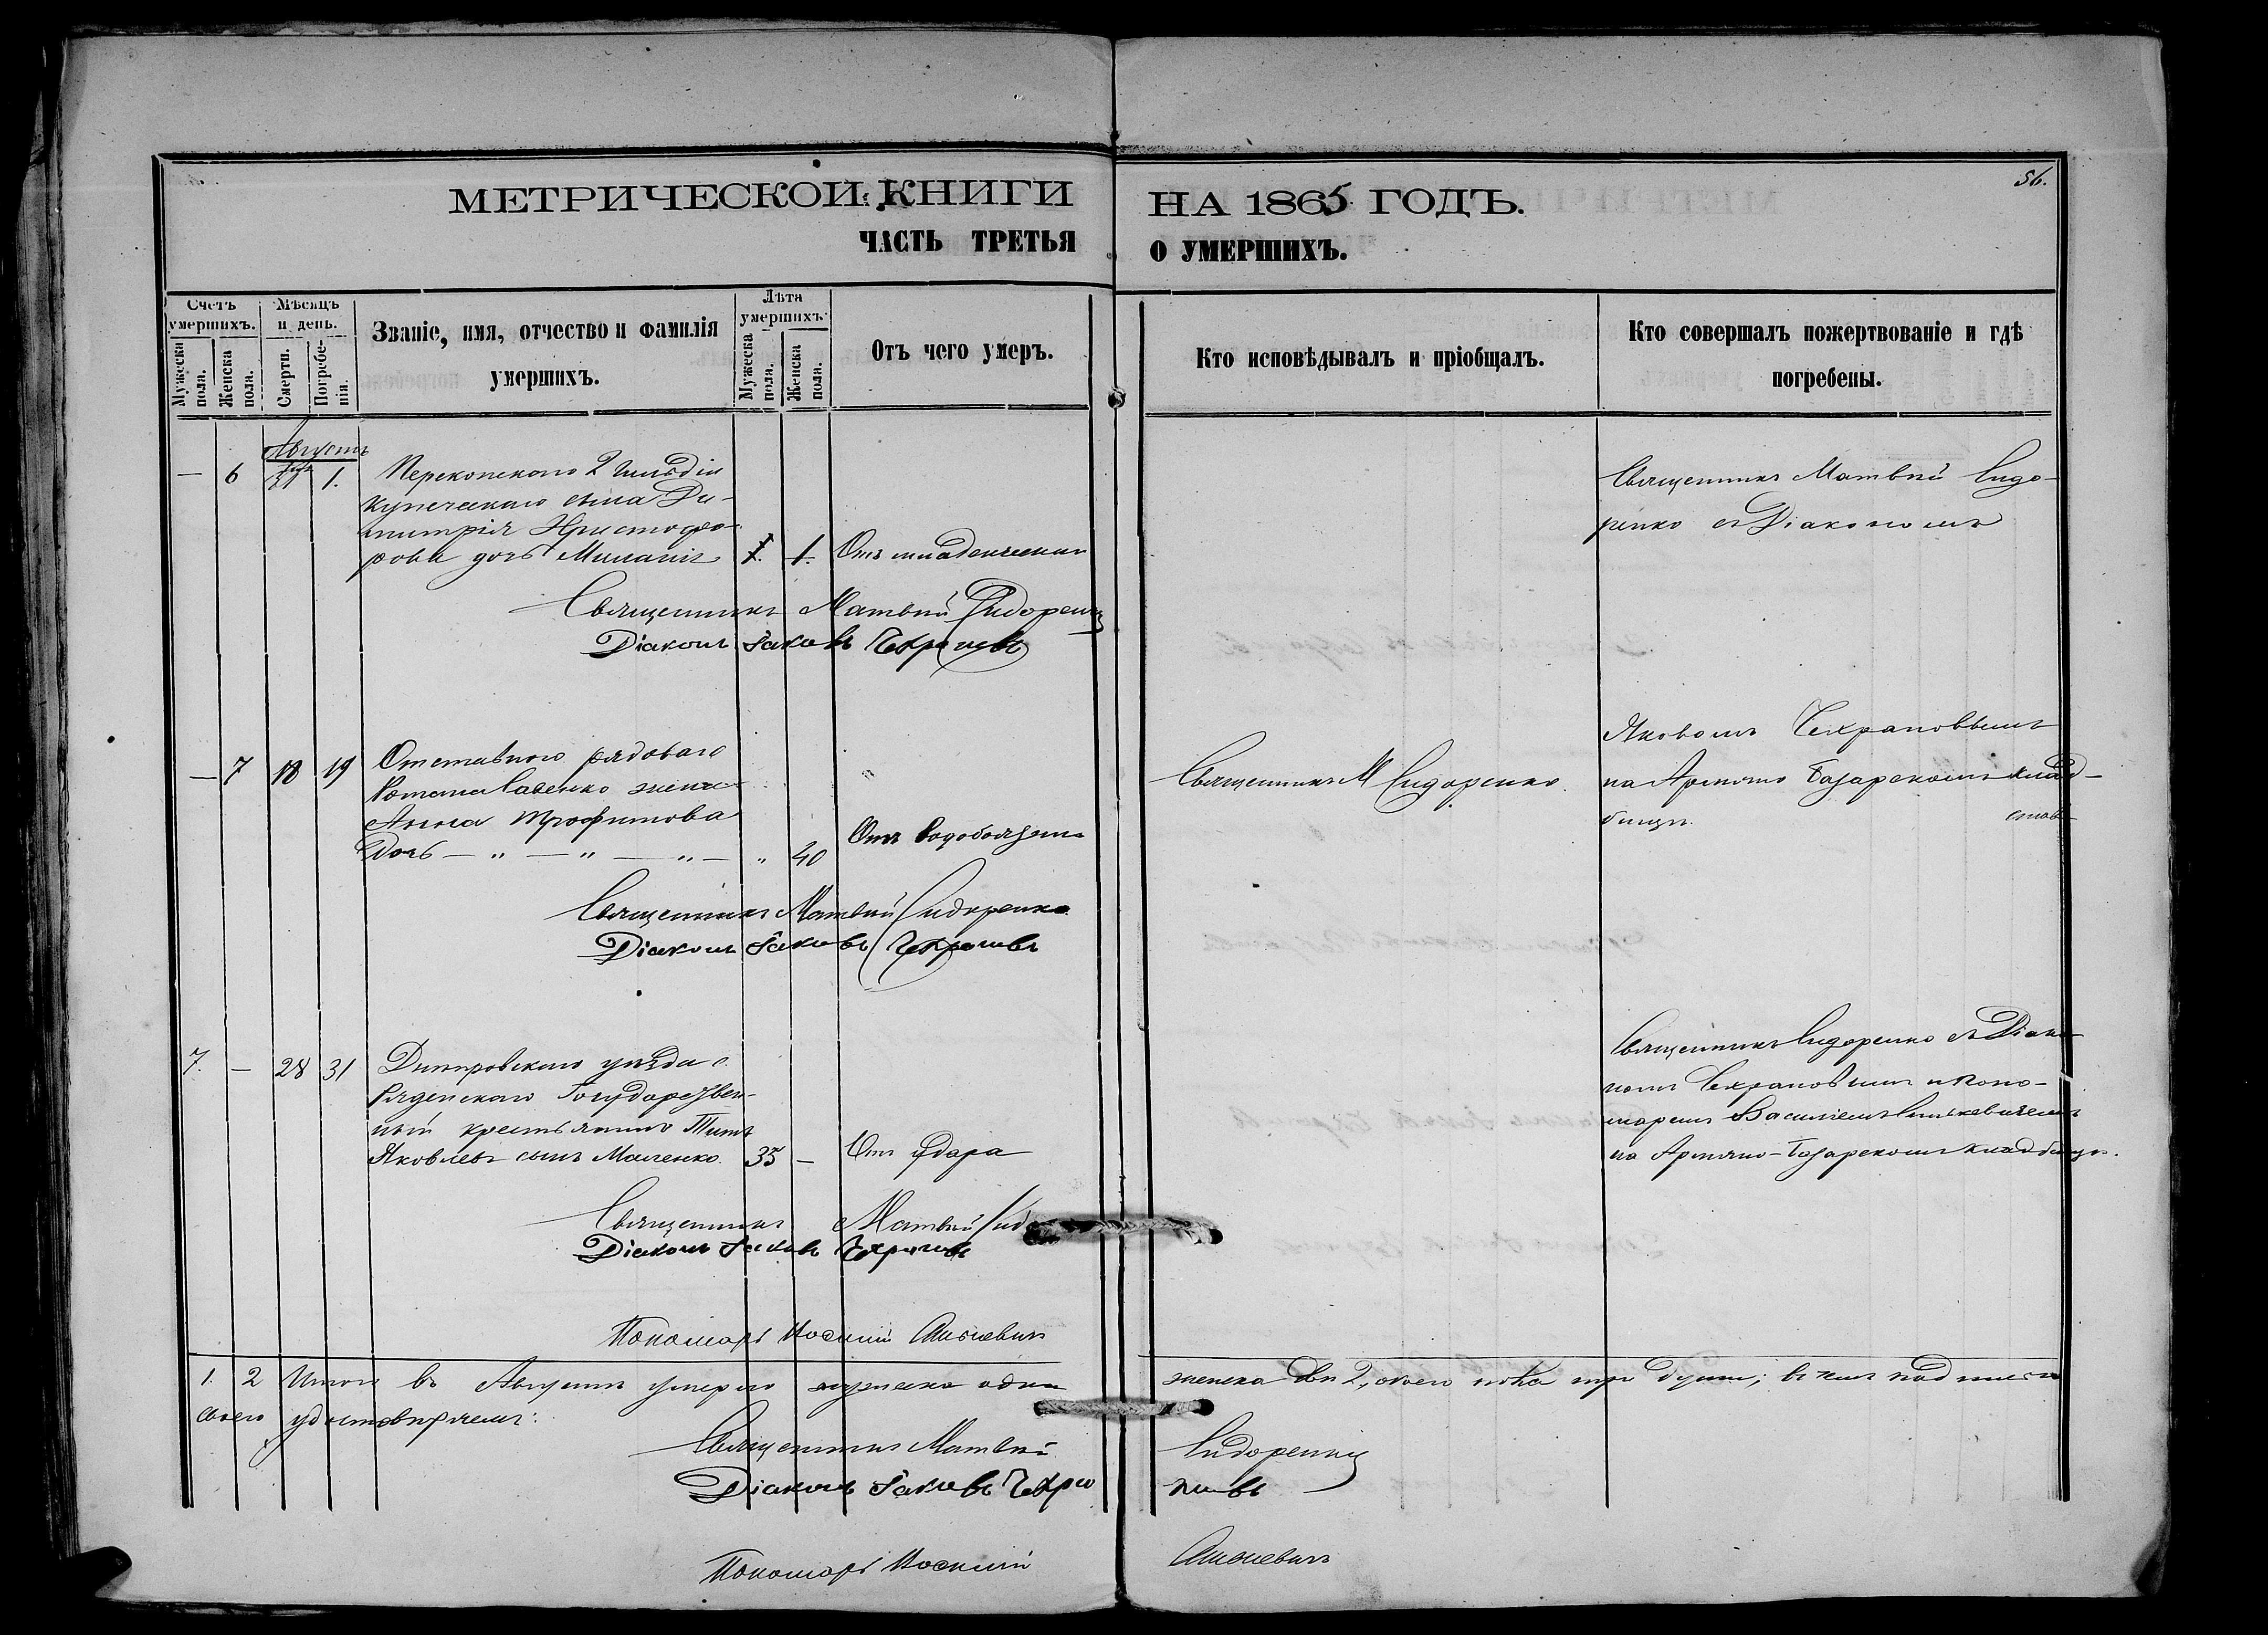 56.
МЕТРИЧЕСКОЙ КНИГИ НА 1865 ГОДЪ.
ЧАСТЬ ТРЕТЬЯ О УМЕРШИХЪ.
Счетъ умершихъ.
Мужеска пола.
Женска пола.
Мѣсяцъ и день.
Смерти.
Погребенія.
Званіе, имя, отчество и фамилія
умершихъ.
Лѣта умершихъ.
Мужеска пола.
Женска пола.
Отъ чего умеръ.
Кто исповѣдывалъ и пріобщалъ.
Кто совершалъ пожертвованіе и гдѣ
погребены.
Августъ
— 6 31 1. Перекопскаго 2 гильдіи
купеческаго сына Ди-
митрія Христофо-
рова дочь 1. Отъ младенческой
Священникъ Матвѣй Сидо-
ренко съ Діакономъ
Священникъ Матвѣй Сидоренко
Діаконъ Іаковъ
— 7 18 19 Отставного рядоваго
Романа жена
Анна Трофимова
Дочь — „ — „ — „ — „ 40 Отъ водобоязни
Священникъ М Сидоренко.
Яковомъ
на Армяно Базарскомъ клад-
бищѣ.
Священникъ Матвѣй Сидоренко
Діаконъ Іаковъ
7. — 28 31 Днѣпровскаго уѣзда с.
Государствен-
ный крестьянинъ Титъ
Яковлевъ сынъ 35 — Отъ удара
Священникъ Сидоренко съ Діако-
номъ и Поно-
маремъ Василіемъ
на Армяно-Базарскомъ кладбищѣ.
Священникъ Матвѣй
Діаконъ Іаковъ
Пономарь
1. 2 Итого въ Августѣ умерло мужеска одна женска двѣ 2, обоего пола три души; въ чемъ подписомъ
своего удостовѣряемъ:
Священникъ Матвѣй Сидоренко
Діаконъ Іаковъ
Пономарь